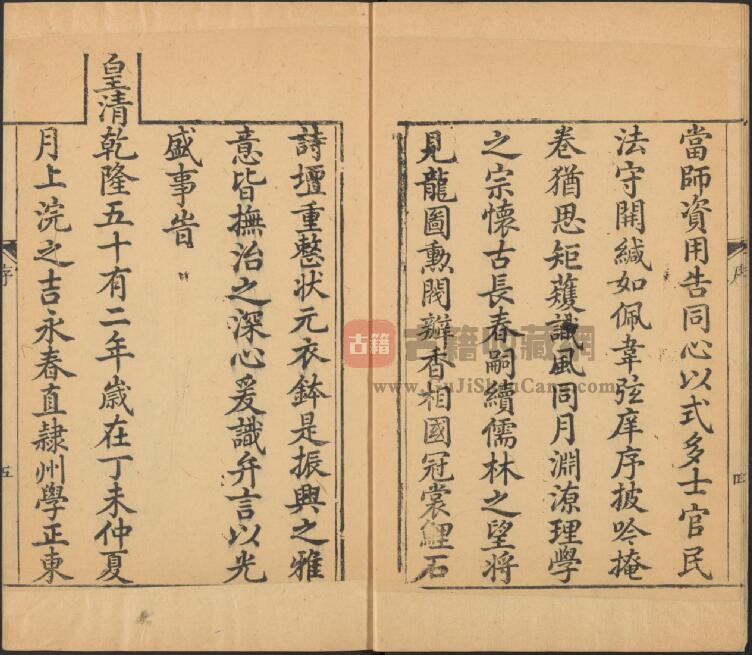 當師資用告同心以式多士官民
法守開緘如佩韋弦庠序披吟掩
卷猶思矩矱識風同月淵源理學
之宗懷古長春嗣續儒林之望將
見龍圖勲閥辦香相國冠裳鯉石
詩壇重整狀元衣鉢是振興之雅
意皆撫治之深心爰識弁言以光
盛事旹
皇清乾隆五十有二年歲在丁未仲夏
月上浣之吉永春直隸州學正東
序
四
序
五
古籍
古籍收藏網
www.GuJiShouCang.com